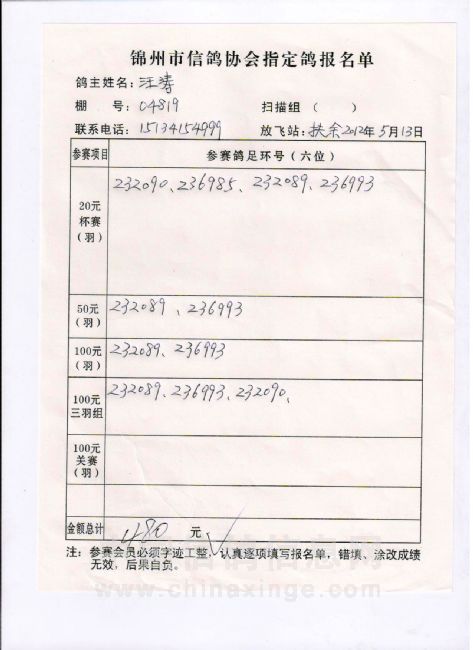 锦州市信鸽协会指定鸽报名单
鸽主姓名：汪涛
棚 号：04819 扫描组（ ）
联系电话：15134154999 放飞站：扶余2012年5月13日
参赛项目 参赛鸽足环号（六位）
20元
杯赛
（羽） 232090、236985、232089、236993
50元
（羽） 232089、236993
100元
（羽） 232089、236993
100元
三羽组 232089、236993、232090、
100元
关赛
（羽）
金额总计 480 元
注：参赛会员必须字迹工整，认真逐项填写报名单，错填、涂改成绩
无效，后果自负。
信鸽信息网
www.chinaxinge.com